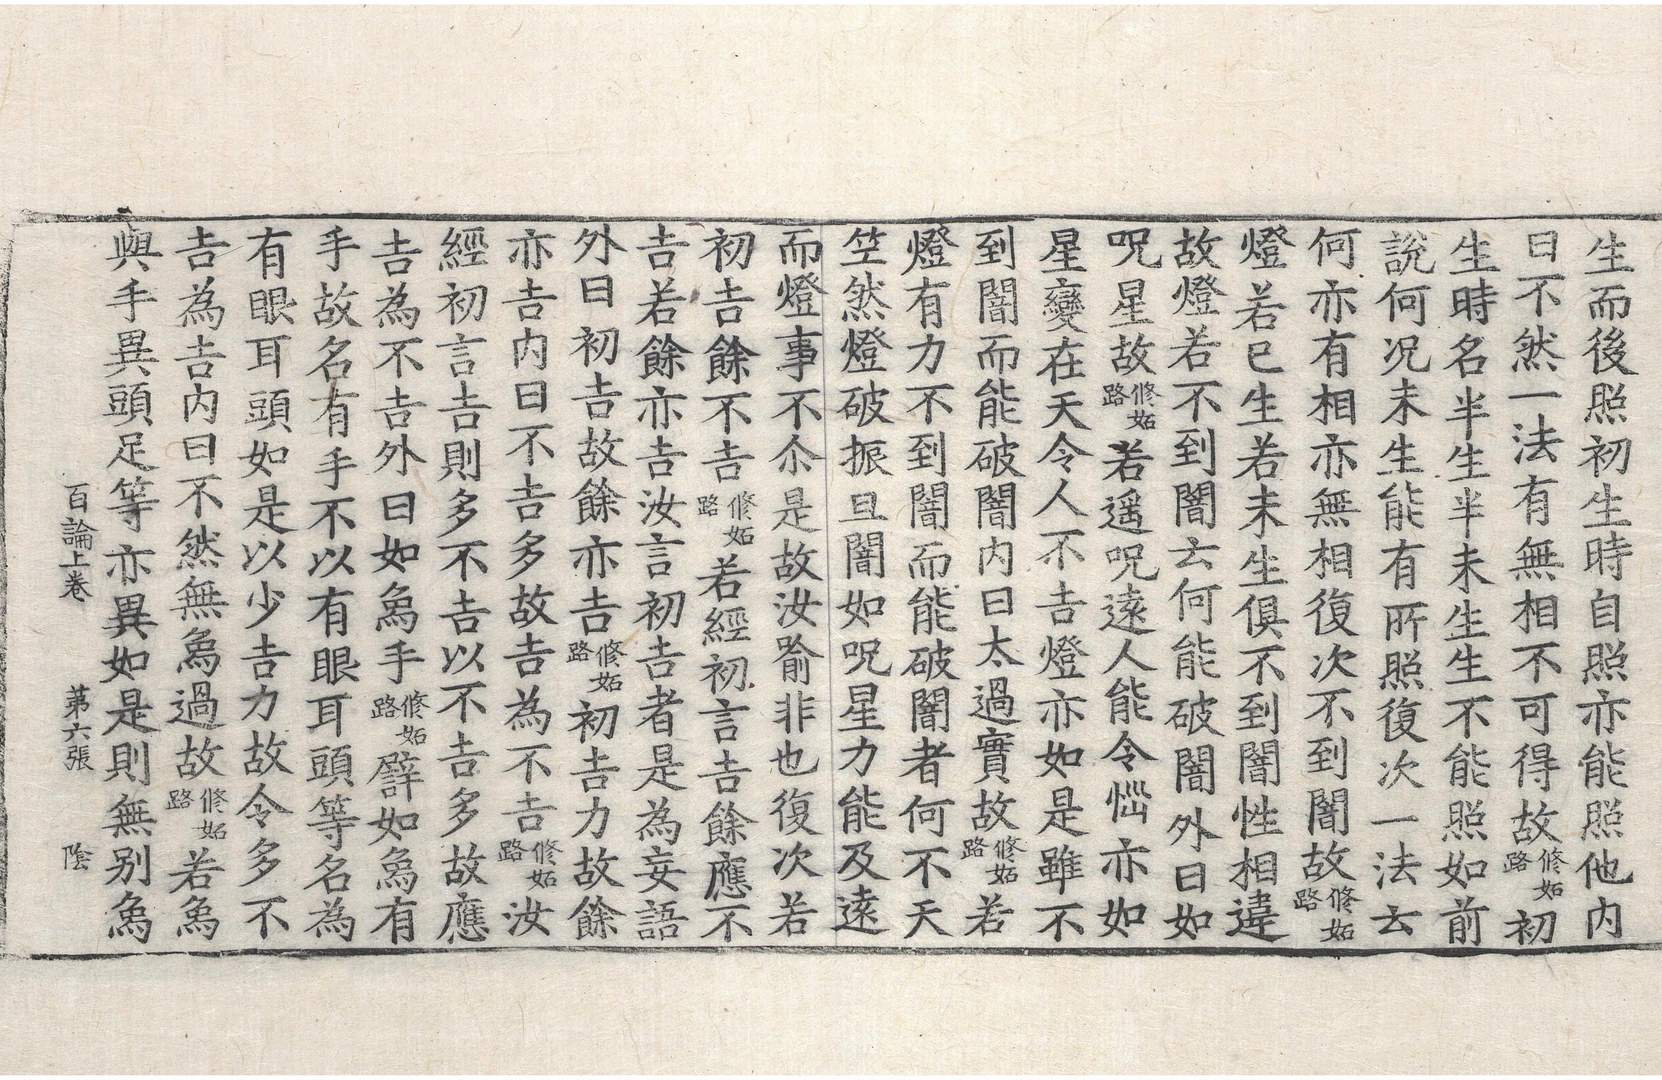 生而後照初生時自照亦能照他內
曰不然一法有無相不可得故修妬路初
生時名半生半未生生不能照如前
說何況未生能有所照復次一法云
何亦有相亦無相復次不到闇故修妬路
燈若已生若未生俱不到闇性相違
故燈若不到闇云何能破闇外曰如
呪星故修妬路若遥呪遠人能令惱亦如
星變在天令人不吉燈亦如是雖不
到闇而能破闇內曰太過實故修妬路若
燈有力不到闇而能破闇者何不天
竺然燈破振旦闇如呪星力能及遠
而燈事不尒是故汝喻非也復次若
初吉餘不吉修妬路若經初言吉餘應不
吉若餘亦吉汝言初吉者是為妄語
外曰初吉故餘亦吉修妬路初吉力故餘
亦吉內曰不吉多故吉為不吉修妬路汝
經初言吉則多不吉以不吉多故應
吉為不吉外曰如象手修妬路譬如象有
手故名有手不以有眼耳頭等名為
有眼耳頭如是以少吉力故令多不
吉為吉內曰不然無象過故修妬路若象
與手異頭足等亦異如是則無別象
百論上卷 第六張 陰